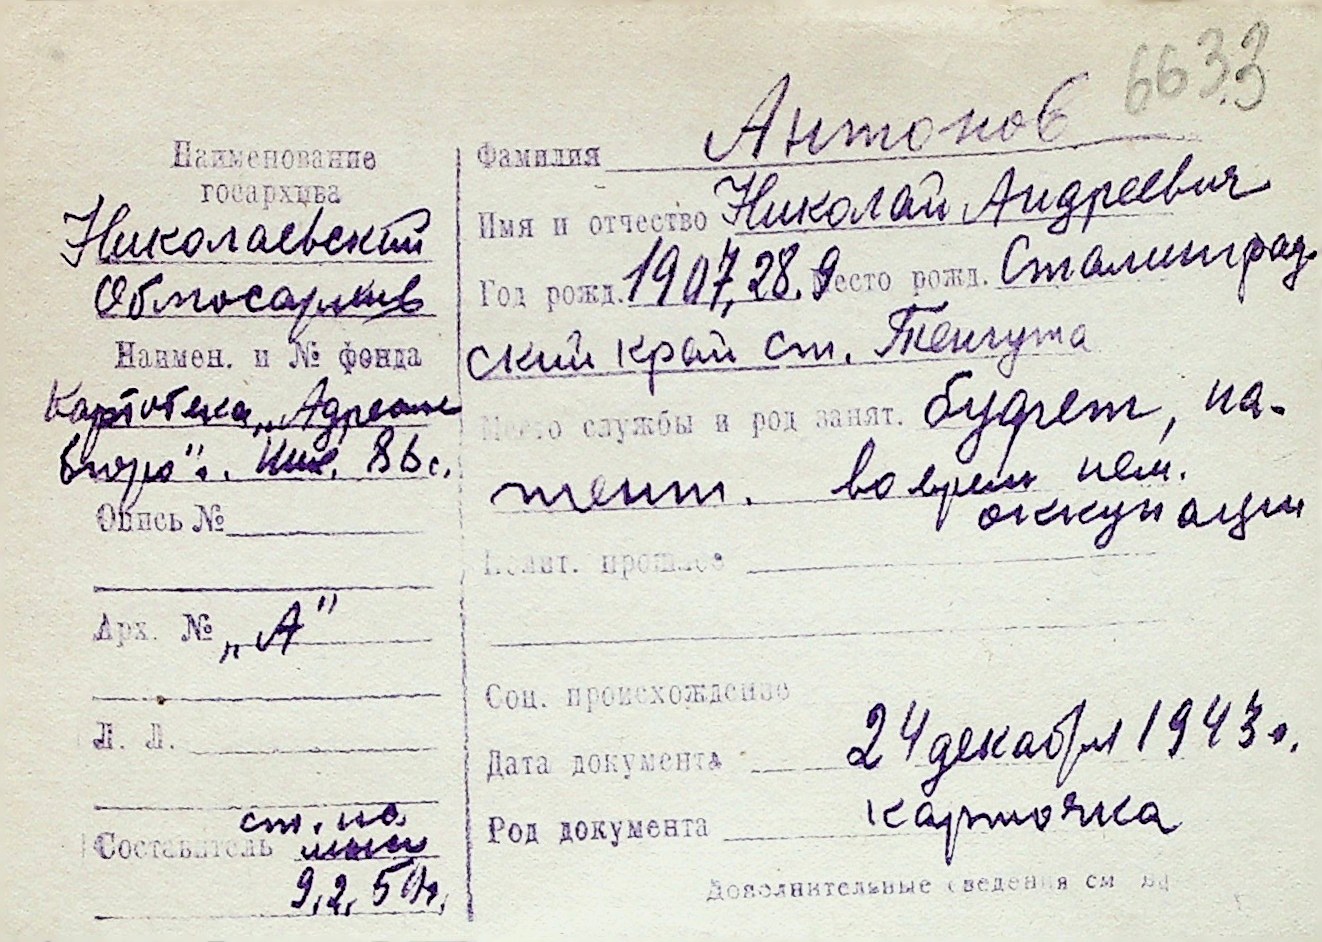 6633
Наименование
госархива
Николаевский
Облгосархив
Наимен. и № фонда
Картотека „Адресное
бюро".
Опись №
Арх. № „А"
Л. Л.
Составитель
9.2.50г.
Фамилия Антонов
Имя и отчество Николай Андреевич
Год рожд. 1907, 28.9 Место рожд. Сталинград
ский край ст. Тенгута
Место службы и род занят. буфет, па-
тент. во время нем.
оккупации
Полит. прошлое
Соц. происхождение
Дата документа 24 декабря 1943г.
Род документа карточка
Дополнительные сведения см на